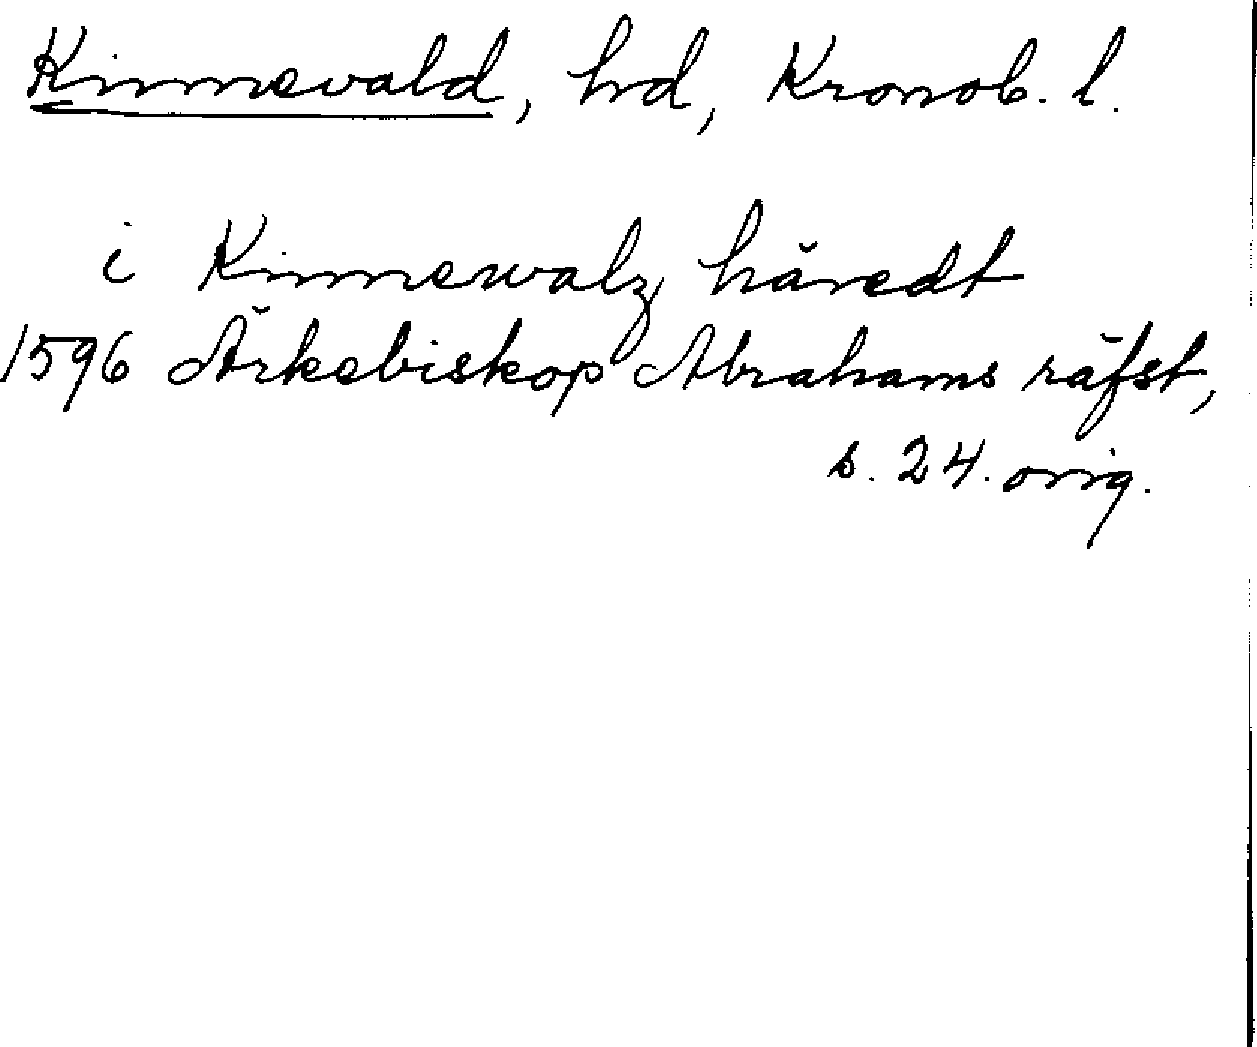 Kinnevald, hd, Kronob. l.
i Kinnewalz häredt
1596 Ärkebiskop Abrahams räfst,
s. 24. orig.